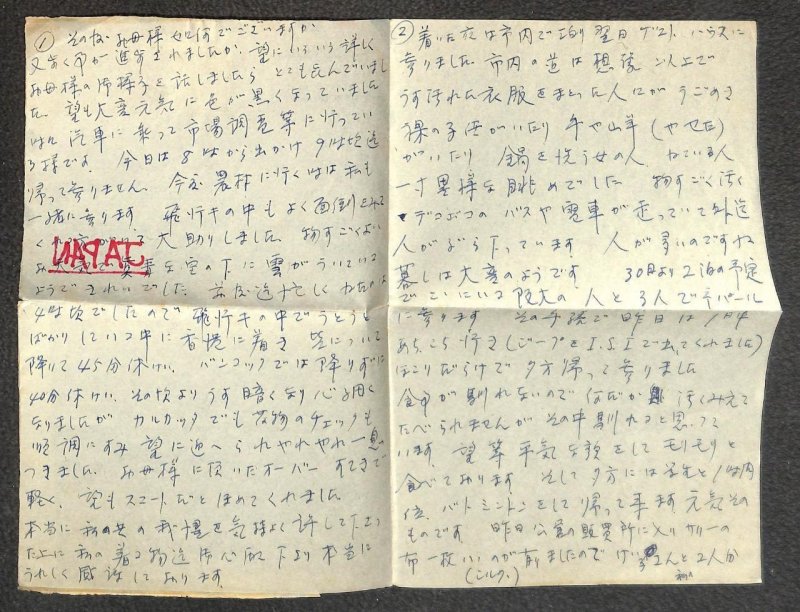 ① その後お母様如何でございますか
様子を話しましたら とても喜んでいまし
た。望も大変元気に色が黒くなっていました
汽車に乗って市場調査等に行ってい
る様です。今日は8時から出かけ 9時頃迄
帰って参りません。今度農村に行く時は私も
一緒に参ります。飛行キの中もよく面倒をみて
大助りしました。物すごくよい
JAPAN
空の下に雲がういていて
ようできれいでした。
4時頃でしたので飛行キの中でうとうと
ばかりしている中に香港に着き 皆について
降りて45分休けい。バンコックでは降りずに
40分休けい。その頃よりうす暗くなり心細く
なりましたが カルカッタでも荷物のチェックも
順調にすみ 望に迎へられやれやれ一息
つきました。お母様に頂いたオーバー すてきで
軽く、望もスマートだとほめてくれました
本当に私の我儘を気持よく許して下さっ
た上に私の着る物迄 本当に
うれしく感謝しております。
② 着いた夜は市内で泊り翌日ゲストハウスに
参りました。市内の道は想像以上で
うす汚れた衣服をまとった人々がうごめき
裸の子供がいたり 牛や山羊(やせた)
がいたり 鍋を洗う女の人 ねている人
一寸異様な眺めでした 物すごく汚く
デコボコのバスや電車が走っていて外迄
人がぶら下っています。人が多いのですね
暮しは大変のようです。30日より2泊の予定
阪大の人と3人でネパール
に参ります その手続で昨日は1日中
あちこち行き(ジープをI.S.Iで出してくれました)
ほこりだらけで夕方帰って参りました
食事が馴れないので何だか汚くみえて
たべられませんがその中馴れると思って
います。望等平気な顔をしてモリモリと
食べております。そして夕方には学生と1時間
位、バトミントンをして帰って来ます。元気その
ものです。昨日公営の販売所に入りサリーの
布一枚いいのが有りましたので 2人分
(シルク)